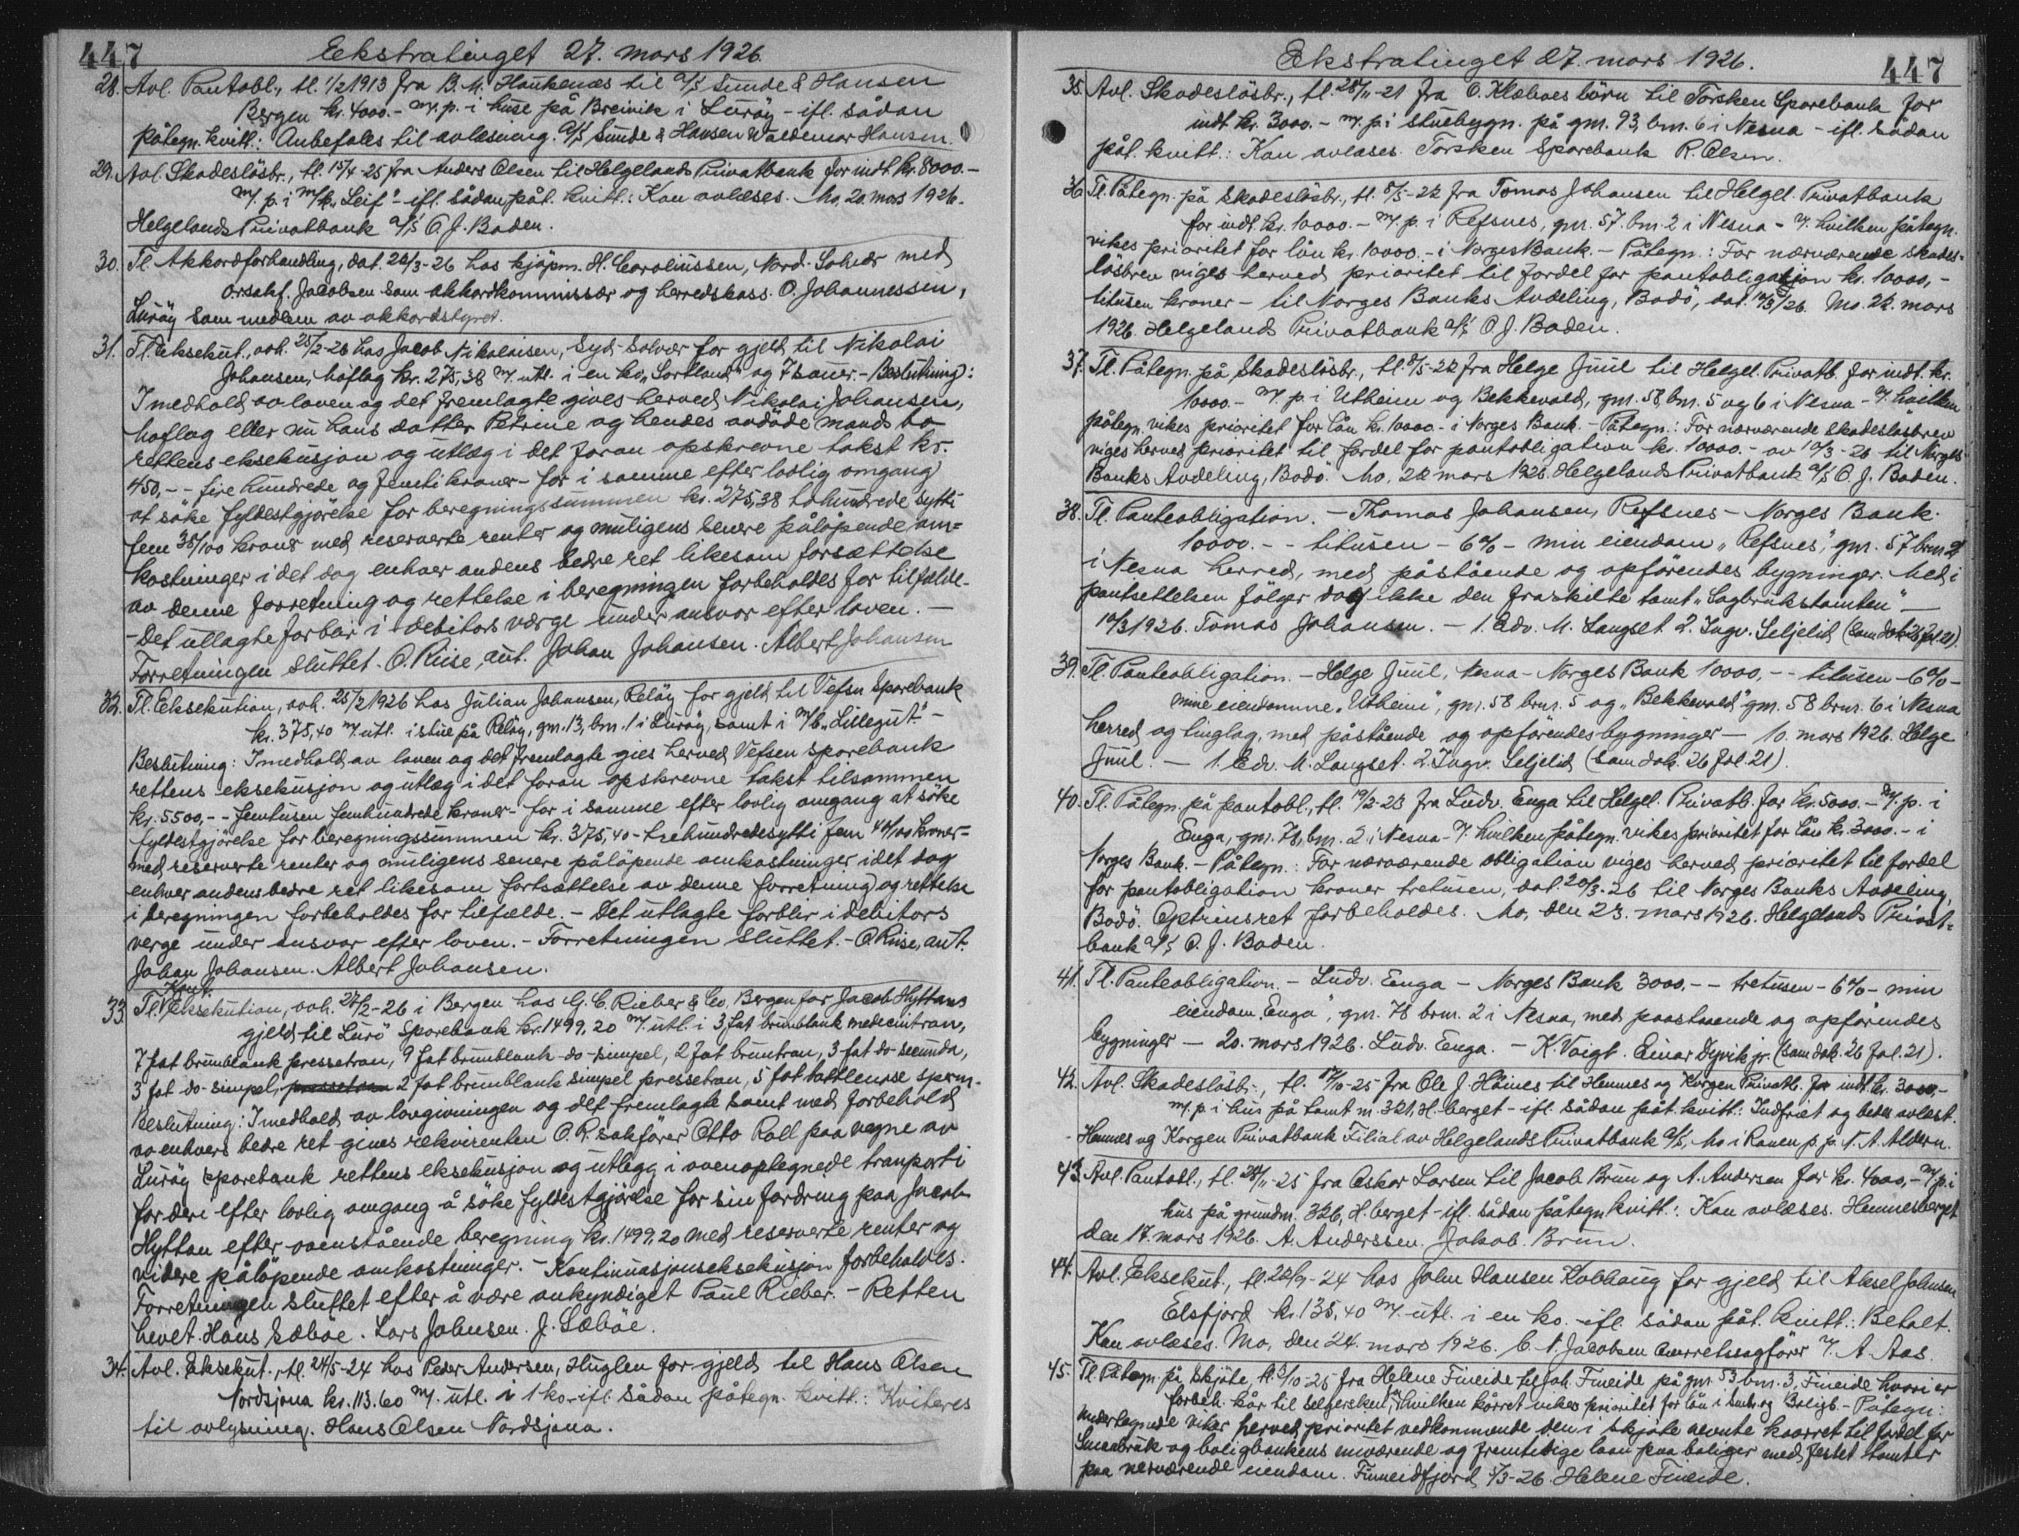 447
Ekstratinget 27. mars 1926.
28. Avl. Pantobl., tl. 1/2 1913 fra B. M. Haukenæs til a/s Sunde & Hansen
Bergen kr. 4000.- m/p. i huse på Breivik i Lurøy - ifl. sådan
påtegn. kvitt.: Anbefales til avlæsning. a/s Sunde & Hansen Waldemar Hansen.
29. Avl. Skadesløsbr., tl. 15/4-25 fra Anders Olsen til Helgelands Privatbank for indt. kr. 8000.-
m/p. i m/k „Leif" - ifl. sådan påt. kvitt.: Kan avlæses. Mo, 20 mars 1926.
Helgelands Privatbank a/s O. J. Baden.
30. Tl. Akkordforhandling, dat. 22/3-26 hos kjøpm. H. Caroliussen, Nord-Solvær med
orsakf. Jacobsen som akkordkommissær og herredskass. O. Johannessen,
Lurøy som medlem av akkordstyret.
31. Tl. Eksekut., avh. 25/2-26 hos Jacob Nikolaisen, Syd-Solvær for gjeld til Nikolai
Johansen, Haflag kr. 275,38 m/utl. i en ko „Sortland" og 7 sauer. - Beslutning:
I medhold av loven og det fremlagte gives herved Nikolai Johansen,
Haflag eller nu hans datter Petrine og hendes avdøde mands bo
rettens eksekusjon og utlæg i det foran opskrevne takst kr.
450,- - fire hundrede og femti kroner - for i samme efter lovlig omgang
at søke fyldestgjørelse for beregningssummen kr. 275,38 tohundrede sytti
fem 38/100 kroner med reserverte renter og muligens senere påløpende om=
kostninger i det dog enhver andens bedre ret likesom forsættelse
av denne forretning og rettelse i beregningen forbeholdes for tilfælde.
- Det utlagte forblir i debitors værge under ansvar efter loven. -
Forretningen sluttet. O. Riise, aut. Johan Johansen. Albert Johansen
32. Tl. Eksekution, avh. 25/2 1926 hos Julian Johansen, Reløy for gjeld til Vefsn Sparebank
kr. 375,40 m/utl. i stue på Reløy, gnr. 13, bnr. 1 i Lurøy, samt i m/b „Lillegut." -
Beslutning: I medhold av loven og det fremlagte gies herved Vefsen sparebank
rettens eksekusjon og utlæg i det foran opskrevne takst tilsammen
kr. 5500,- - femtusen femhundrede kroner - for i samme efter lovlig omgang at søke
fyldestgjørelse for beregningssummen kr. 375,40 - trehundredesytti fem 40/100 kroner -
med reserverte renter og muligens senere påløpende omkostninger idet dog
enhver andens bedre ret likesom fortsættelse av denne forretning og rettelse
i beregningen forbeholdes for tilfælde. - Det utlagte forblir i debitors
verge under ansvar efter loven. - Forretningen sluttet. - O. Riise, aut.
Johan Johansen. Albert Johansen.
33. Tl. Kont. Eksekution, avh. 27/2-26 i Bergen hos G. C. Rieber & Co, Bergen for Jacob Hyttans
gjeld til Lurø Sparebank kr. 1499,20 m/utl. i 3 fat brunblank medecintran,
7 fat brunblank pressetran, 9 fat brunblank -do- simpel, 2 fat bruntran, 3 fat do secunda,
3 fat do simpel, 2 fat brunblank simpel pressetran, 5 fat bottlenose sperm.
Beslutning: I medhold av lovgivningen og det fremlagte samt med forbehold
av enhvers bedre ret gives rekvirenten O.R. sakfører Otto Roll paa vegne av
Lurøy Sparebank rettens eksekusjon og utlegg i ovenoptegnede tranparti
for deri efter lovlig omgang å søke fyldestgjørelse for sin fordring paa Jacob
Hyttan efter ovenstående beregning kr. 1499,20 med reserverte renter og
videre påløpende omkostninger. - Kontinuasjonseksekusjon forbeholdes.
Forretningen sluttet efter å være ankyndiget Paul Rieber. - Retten
hevet. Hans Sæbøe. Lars Johnsen. J. Sæbøe.
34. Avl. Eksekut., tl. 24/5-24 hos Peder Andersen, Huglen for gjeld til Hans Olsen
Nordsjona kr. 113.60 m/utl. i 1 ko - ifl. sådan påtegn. kvitt.: Kviteres
til avlysning. Hans Olsen Nordsjona.
Ekstratinget 27. mars 1926.
447
35. Avl. Skadesløsbr., tl. 28/11-21 fra O. Klæboes børn til Torsken Sparebank for
indt. kr. 3000.- m/p. i stuebygn. på gnr. 93, bnr. 6 i Nesna - ifl. sådan
påt. kvitt.: Kan avlæses. Torsken Sparebank R. Olsen.
36. Tl. Påtegn. på skadesløsbr., tl. 8/5-22 fra Tomas Johansen til Helgel. Privatbank
for indt. kr. 10000.- m/p. i Refsnes, gnr. 57 bnr. 2 i Nesna - v/ hvilken påtegn.
vikes prioritet for lån kr. 10000.- i Norges Bank. - Påtegn.: For nærværende skades-
løsbrev viges herved prioritet til fordel for pantobligasjon kr. 10000,-
titusen kroner - til Norges Banks Avdeling, Bodø, dat. 12/3/26. Mo. 22. mars
1926. Helgelands Privatbank a/s O. J. Baden.
37. Tl. Påtegn. på skadesløsbr., tl. 8/5-22 fra Helge Juul til Helgel. Privatb. for indt. kr.
10000.- m/p. i Utheim og Bekkevold, gnr. 58, bnr. 5 og 6 i Nesna - v/ hvilken
påtegn. vikes prioritet for lån kr. 10000.- i Norges Bank. - Påtegn.: For nærværende skadesløsbrev
viges herved prioritet til fordel for pantobligation kr. 10000.- av 10/3-26 til Norges
Banks Avdeling, Bodø. Mo, 22 mars 1926. Helgelands Privatbank a/s O. J. Baden.
38. Tl. Panteobligation. - Thomas Johansen, Refsnes - Norges Bank.
10000.- - titusen - 6% - min eiendom „Refsnes", gnr. 57 bnr. 2
i Nesna herred, med påstående og opførendes bygninger. Med i
pantsettelsen følger dog ikke den fraskilte tomt „Sagbrukstomten" -
12/3 1926. Tomas Johansen. - 1. Edv. M. Langset 2. Ingv. Seljelid (Sam. dok. 26 fol. 21).
39. Tl. Panteobligation. - Helge Juul, Nesna - Norges Bank 10000,- - titusen - 6% -
mine eiendomme „Utheim", gnr. 58 bnr. 5 og „Bekkevold" gnr. 58 bnr. 6 i Nesna
herred og tinglag, med påstående og opførendes bygninger - 10. mars 1926. Helge
Juul. - 1. Edv. M. Langset. 2. Ingv. Seljelid (Sam. dok. 26 fol. 21).
40. Tl. Påtegn. på pantobl., tl. 19/2-23 fra Ludv. Enga til Helgel. Privatb. for kr. 5000.- m/p. i
Enga, gnr. 78, bnr. 2 i Nesna - v/ hvilken påtegn. vikes prioritet for lån kr. 3000.- i
Norges Bank. - Påtegn.: For nærværende obligation viges herved prioritet til fordel
for pantobligation kroner tretusen, dat. 20/3-26 til Norges Banks Avdeling,
Bodø. Optrinsret forbeholdes. Mo, den 23. mars 1926. Helgelands Privat=
bank a/s O. J. Baden.
41. Tl. Panteobligation. - Ludv. Enga - Norges Bank 3000.- - tretusen - 6% - min
eiendom „Enga", gnr. 78 bnr. 2 i Nesna, med paastaaende og opførendes
bygninger - 20. mars 1926. Ludv. Enga. - K. Voigt. Einar Dyvik jr. (Sam. dok. 26 fol. 21).
42. Avl. Skadesløsbr., tl. 17/10-25 fra Ole J. Høines til Hemnes og Korgen Privatb. for indt. kr. 3000,-
m/p. i hus på tomt nr. 321, H.berget - ifl. sådan påt. kvitt.: Indfriet og bedes avlest.
Hemnes og Korgen Privatbank Filial av Helgelands Privatbank a/s, Mo i Ranen p.p. N. A. Aldern.
43. Avl. Pantobl., tl. 28/11-25 fra Oskar Larsen til Jacob Brun og A. Andersen for kr. 4000,- m/p. i
hus på grundnr. 326, H.berget - ifl. sådan påtegn. kvitt.: Kan avlæses. Hemnesberget
den 17. mars 1926. A. Anderssen. Jakob. Brun.
44. Avl. Eksekut., tl. 22/9-24 hos John Hansen Kobhaug for gjeld til Aksel Johnsen
Elsfjord kr. 138,40 m/utl. i en ko - ifl. sådan påt. kvitt.: Betalt.
Kan avlæses. Mo, den 24. mars 1926. C. N. Jacobsen overretssagfører v/ A. Aas.
45. Tl. Påtegn. på skjøte, tl. 3/10-25 fra Helene Fineide til Joh. Fineide på gnr. 53 bnr. 3, Fineide hvori er
forbeh. kår til selgersken v/ hvilken kåret vikes prioritet for lån i Småbr. og Boligb. - Påtegn:
Undertegnede viker herved prioritet vedkommende den i skjøte nevnte kaarret til fordel for
Smaabruk og boligbankens nuværende og fremtidige laan paa boliger med festet tomter
paa nerværende eiendom. Finneidfjord 5/3-26. Helene Fineide.